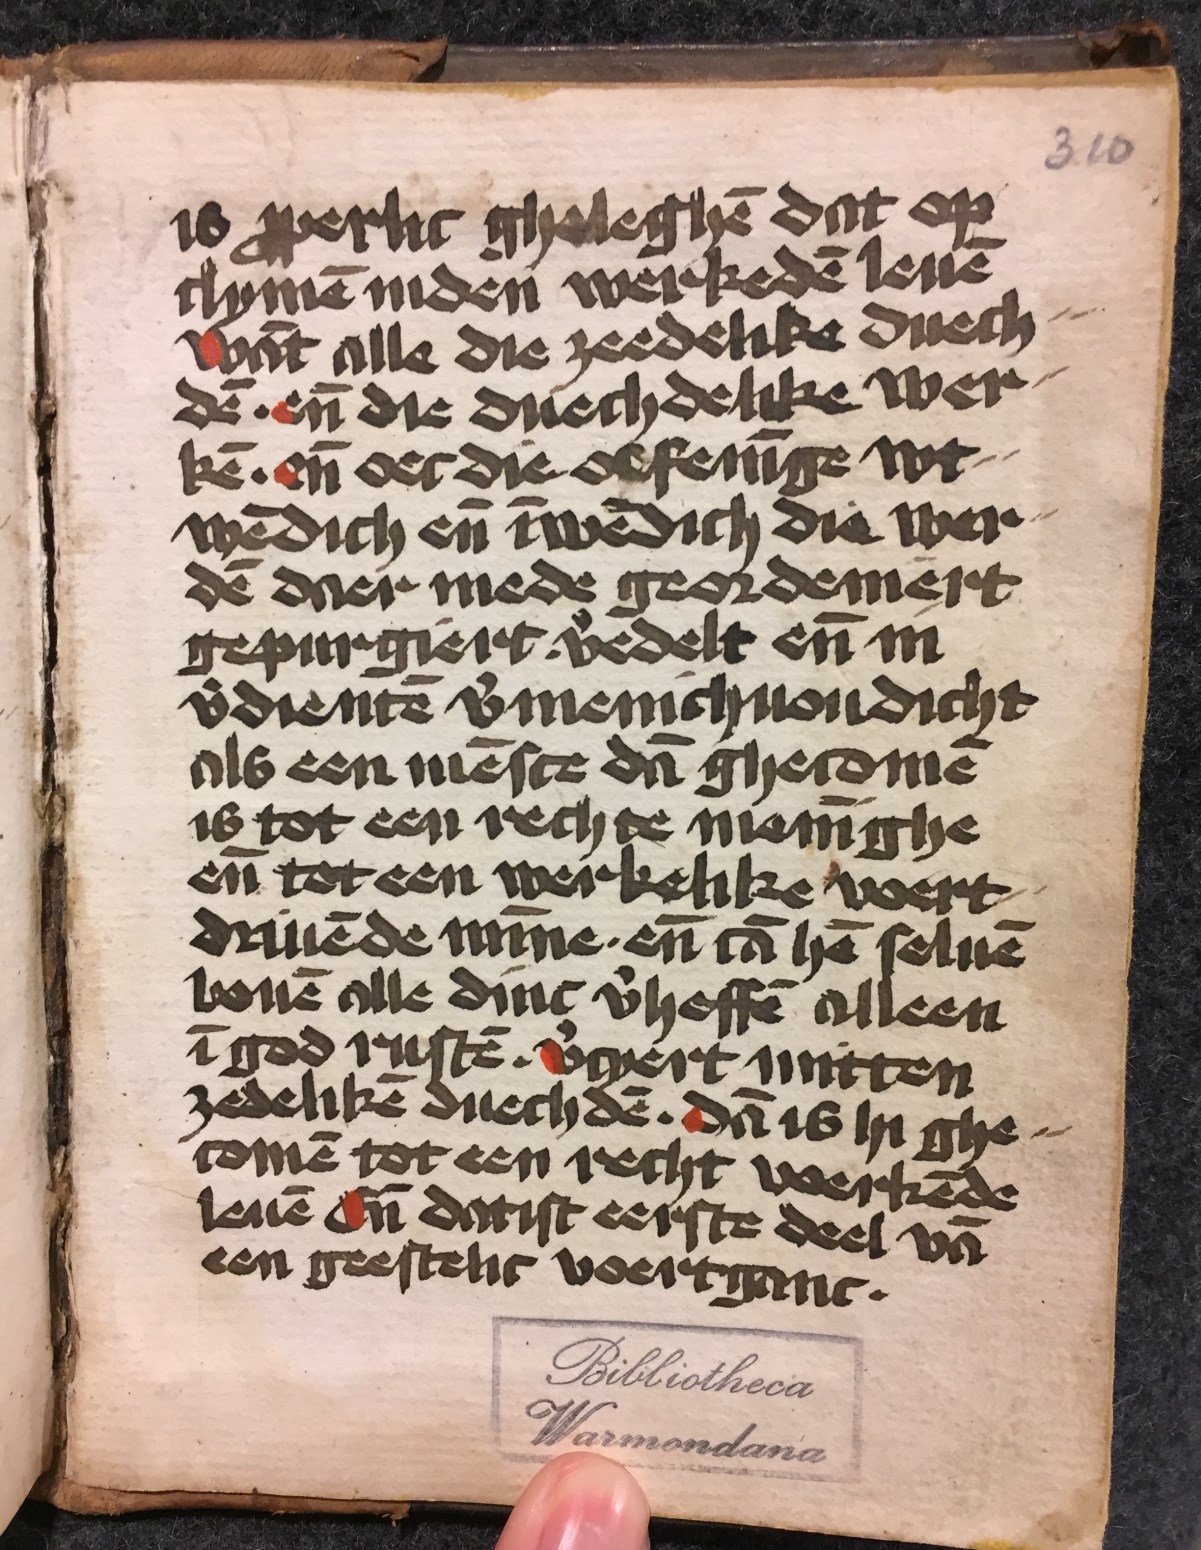 310
is ꝓperlic gheleghē dat op
clymē inden werkedē leuē
wāt alle die zeedelike duech
dē · eñ die duechdelike wer
kē · eñ oec die oefenīge wt
wēdich eñ īwēdich die wer
dē daer mede geordeniert
gepurgiert · v̉edelt eñ in
v̉dientē v̉menichuoudicht
als een mēsce dā ghecomē
is tot een rechte menīghe
eñ tot een werkelike voert
driuēde mīne · eñ cā hē seluē
bouē alle dinc v̉heffē alleen
ī god rustē · v̉cyert mitten
zedelikē duechdē · dā is hi ghe
comē tot een recht werkēde
leuē Eñ datist eerste deel vā
een geestelic voertganc ·
Bibliotheca
Warmondana